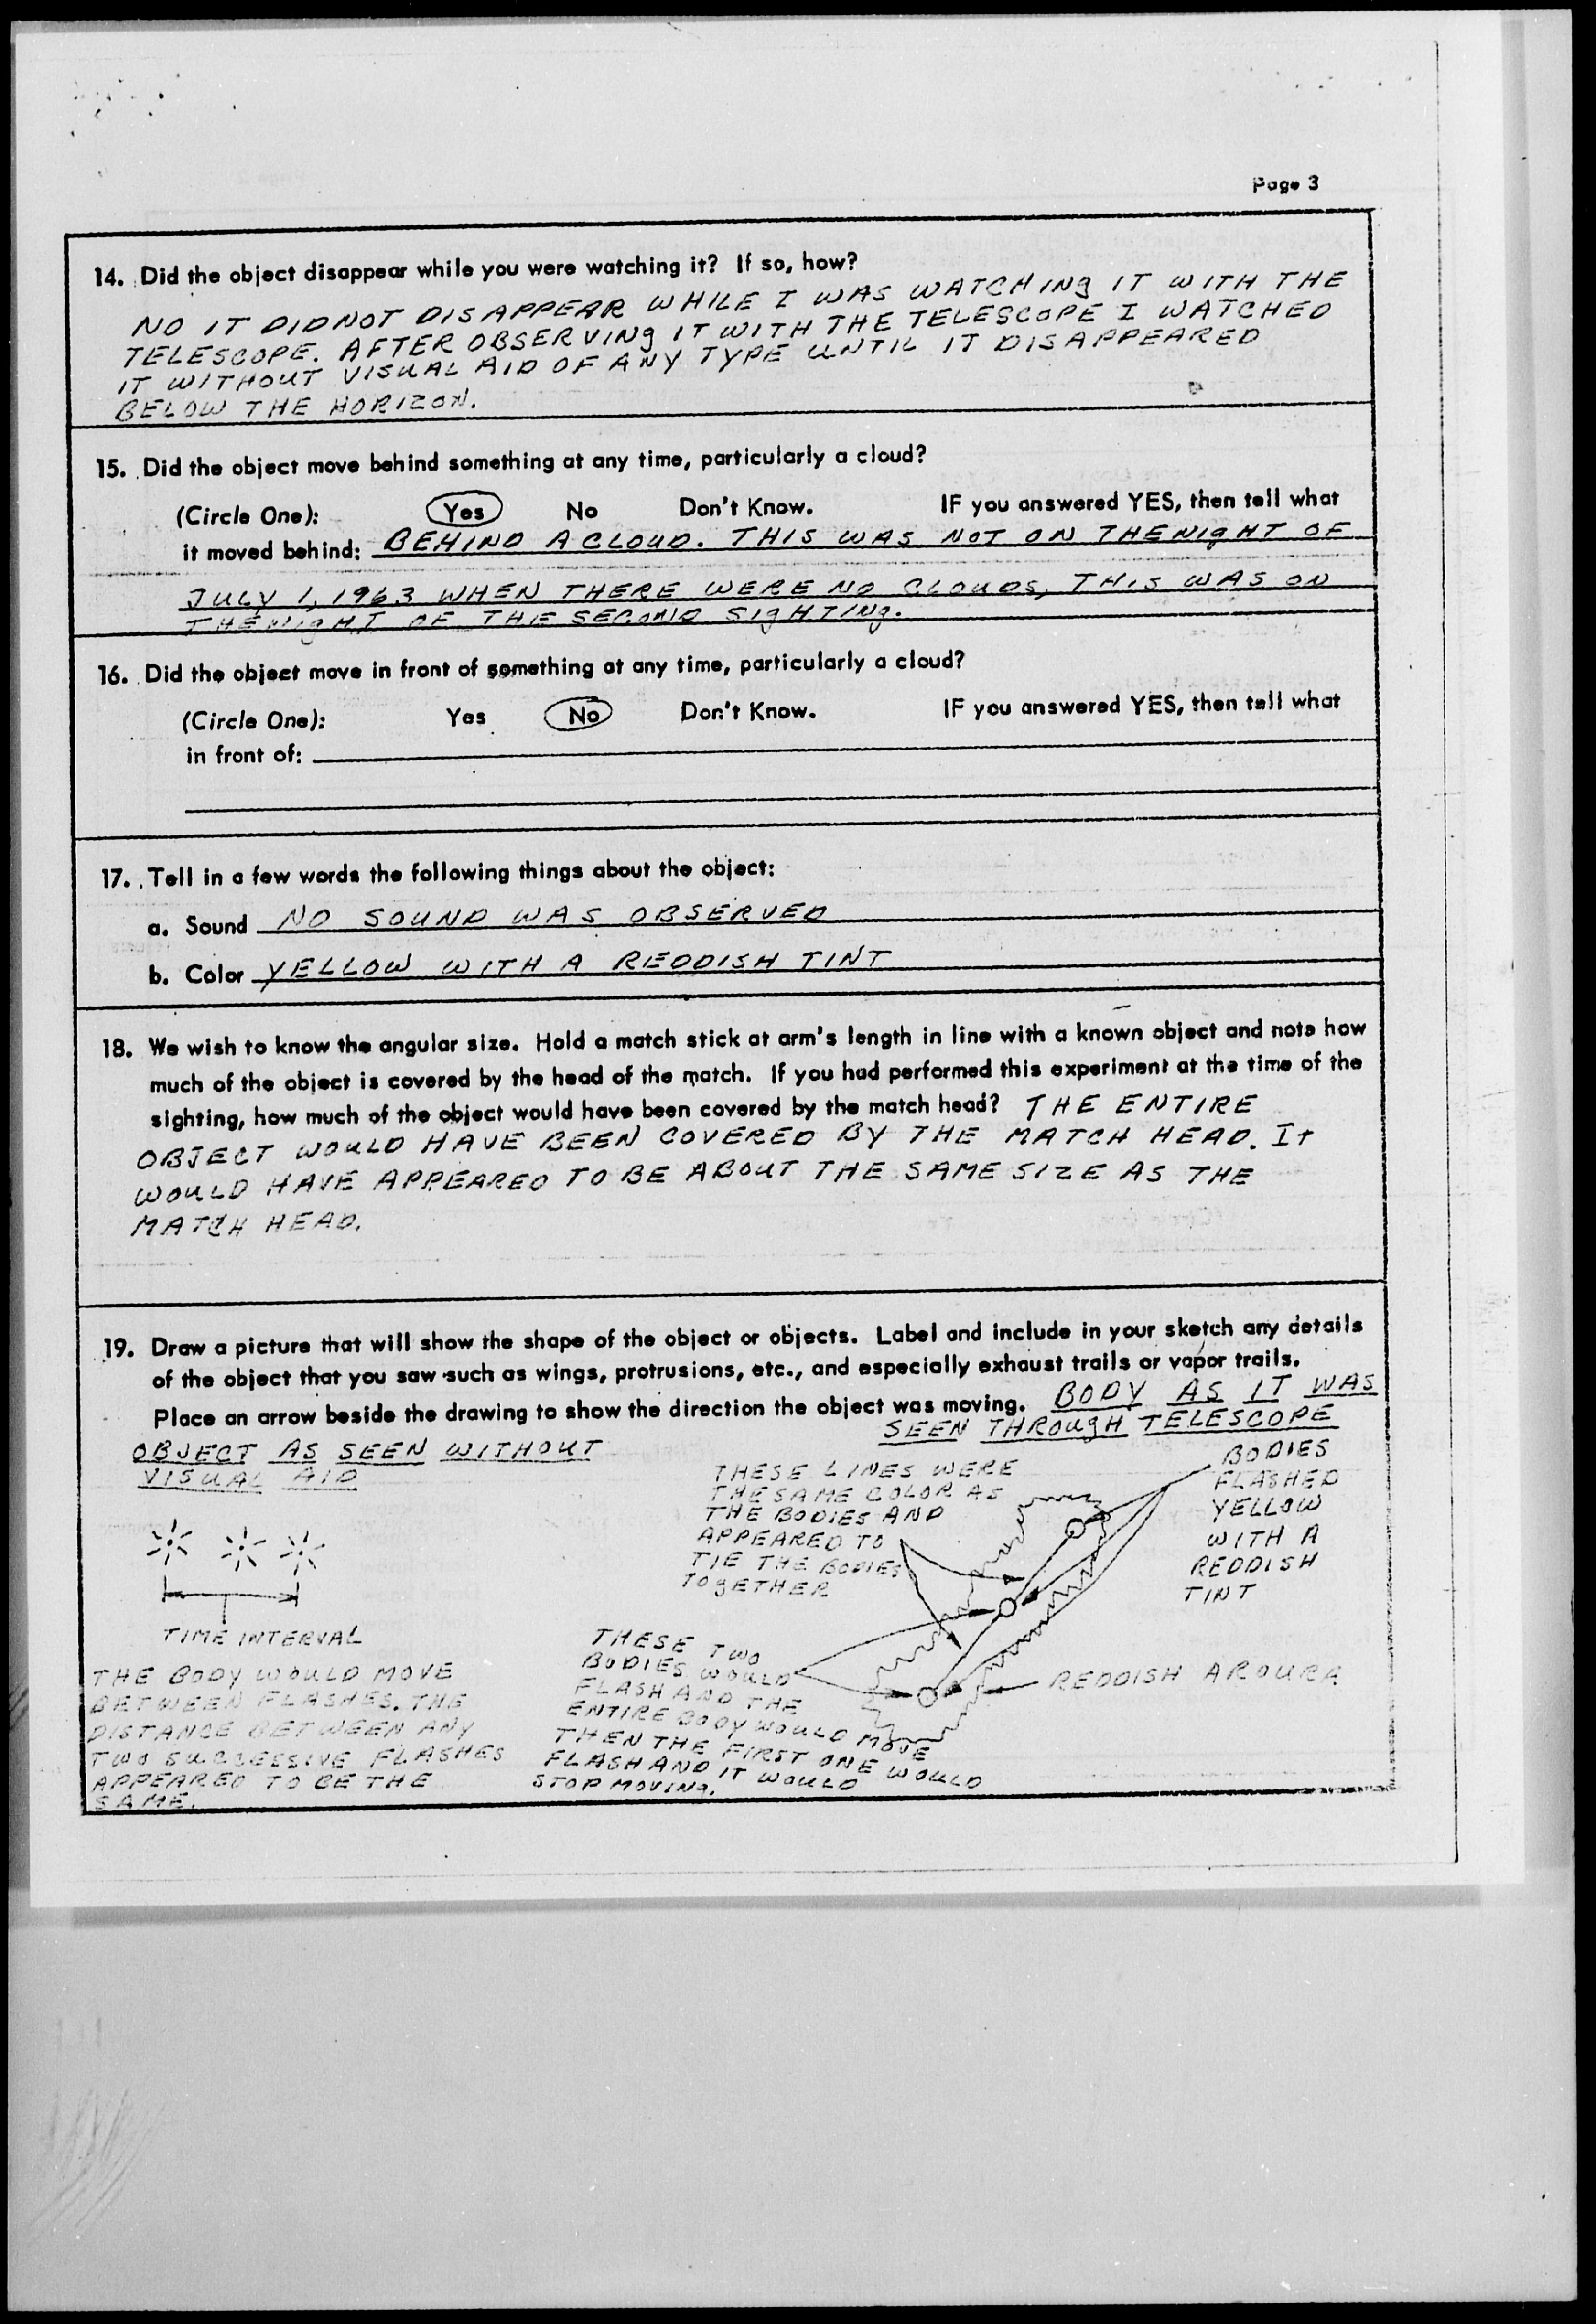 Page 3
14. Did the object disappear while you were watching it? If so, how?
NO IT DID NOT DISAPPEAR WHILE I WAS WATCHING IT WITH THE
TELESCOPE. AFTER OBSERVING IT WITH THE TELESCOPE I WATCHED
IT WITHOUT VISUAL AID OF ANY TYPE UNTIL IT DISAPPEARED
BELOW THE HORIZON.
15. Did the object move behind something at any time, particularly a cloud?
(Circle One): Yes No Don't Know. IF you answered YES, then tell what
it moved behind: BEHIND A CLOUD. THIS WAS NOT ON THE NIGHT OF
JULY 1, 1963 WHEN THERE WERE NO CLOUDS, THIS WAS ON
THE NIGHT OF THE SECOND SIGHTING.
16. Did the object move in front of something at any time, particularly a cloud?
(Circle One): Yes No Don't Know. IF you answered YES, then tell what
in front of:
17. Tell in a few words the following things about the object:
a. Sound NO SOUND WAS OBSERVED
b. Color YELLOW WITH A REDDISH TINT
18. We wish to know the angular size. Hold a match stick at arm's length in line with a known object and note how
much of the object is covered by the head of the match. If you had performed this experiment at the time of the
sighting, how much of the object would have been covered by the match head? THE ENTIRE
OBJECT WOULD HAVE BEEN COVERED BY THE MATCH HEAD. It
WOULD HAVE APPEARED TO BE ABOUT THE SAME SIZE AS THE
MATCH HEAD.
19. Draw a picture that will show the shape of the object or objects. Label and include in your sketch any details
of the object that you saw such as wings, protrusions, etc., and especially exhaust trails or vapor trails.
Place an arrow beside the drawing to show the direction the object was moving. BODY AS IT WAS
SEEN THROUGH TELESCOPE
OBJECT AS SEEN WITHOUT
VISUAL AID
TIME INTERVAL
THE BODY WOULD MOVE
BETWEEN FLASHES. THE
DISTANCE BETWEEN ANY
TWO SUCCESSIVE FLASHES
APPEARED TO BE THE
SAME.
THESE LINES WERE
THE SAME COLOR AS
THE BODIES AND
APPEARED TO
TIE THE BODIES
TOGETHER
BODIES
FLASHED
YELLOW
WITH A
REDDISH
TINT
THESE TWO
BODIES WOULD
FLASH AND THE
ENTIRE BODY WOULD MOVE
THEN THE FIRST ONE WOULD
FLASH AND IT WOULD
STOP MOVING.
REDDISH AROURA